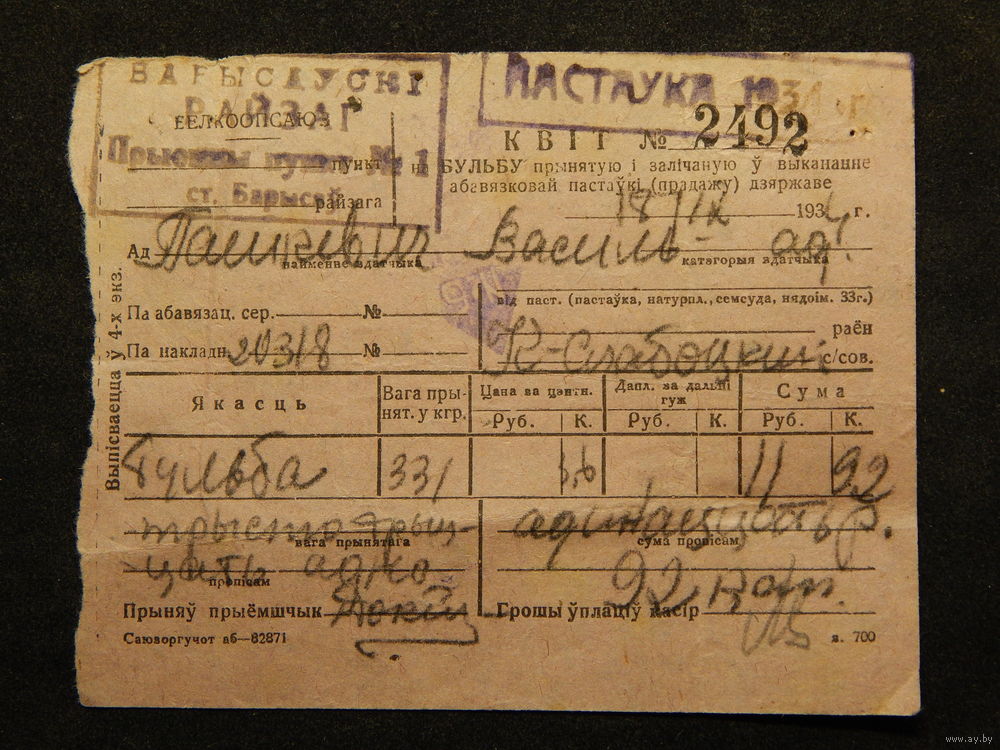 БАРЫСАЎСКІ
РАЙЗАГ
БЕЛКООПСАЮЗ
Прыёмны пункт № 1
пункт
ст. Барысаў
райзага
ПАСТАЎКА 1934 г.
КВІТ № 2492
на БУЛЬБУ прынятую і залічаную ў выкананне
абавязковай пастаўкі (прадажу) дзяржаве
18/IX 1934 г.
Ад Пашкевіч Василь
найменне здатчыка
катэгорыя здатчыка
від паст. (пастаўка, натурпл., семсуда, нядоім. 33г.)
Па абавязац. сер. №
раён
Па накладн. 20318 №
К-Слабоцкий с/сов.
Выпісваецца ў 4-х экз.
Якасць
Вага прынят. у кгр.
Цана за цэнтн.
Дапл. за дальні гуж
Сума
Руб. К. Руб. К. Руб. К.
Бульба 331 3,6 11 92
трыста трыц-
вага прынятага
цать адно
пропісам
адинаццать р.
сума пропісам
92 кап.
Прыняў прыёмшчык
Грошы ўплаціў касір
Саюзоргучот аб—82871
з. 700
www.ay.by